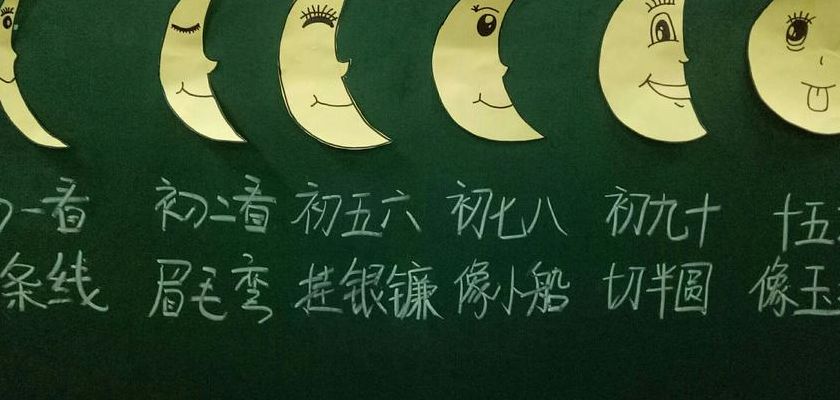 一看 初二看 初五六 初七八 初九十 十五
条线 眉毛弯 挂银镰 像小船 切半圆 像玉